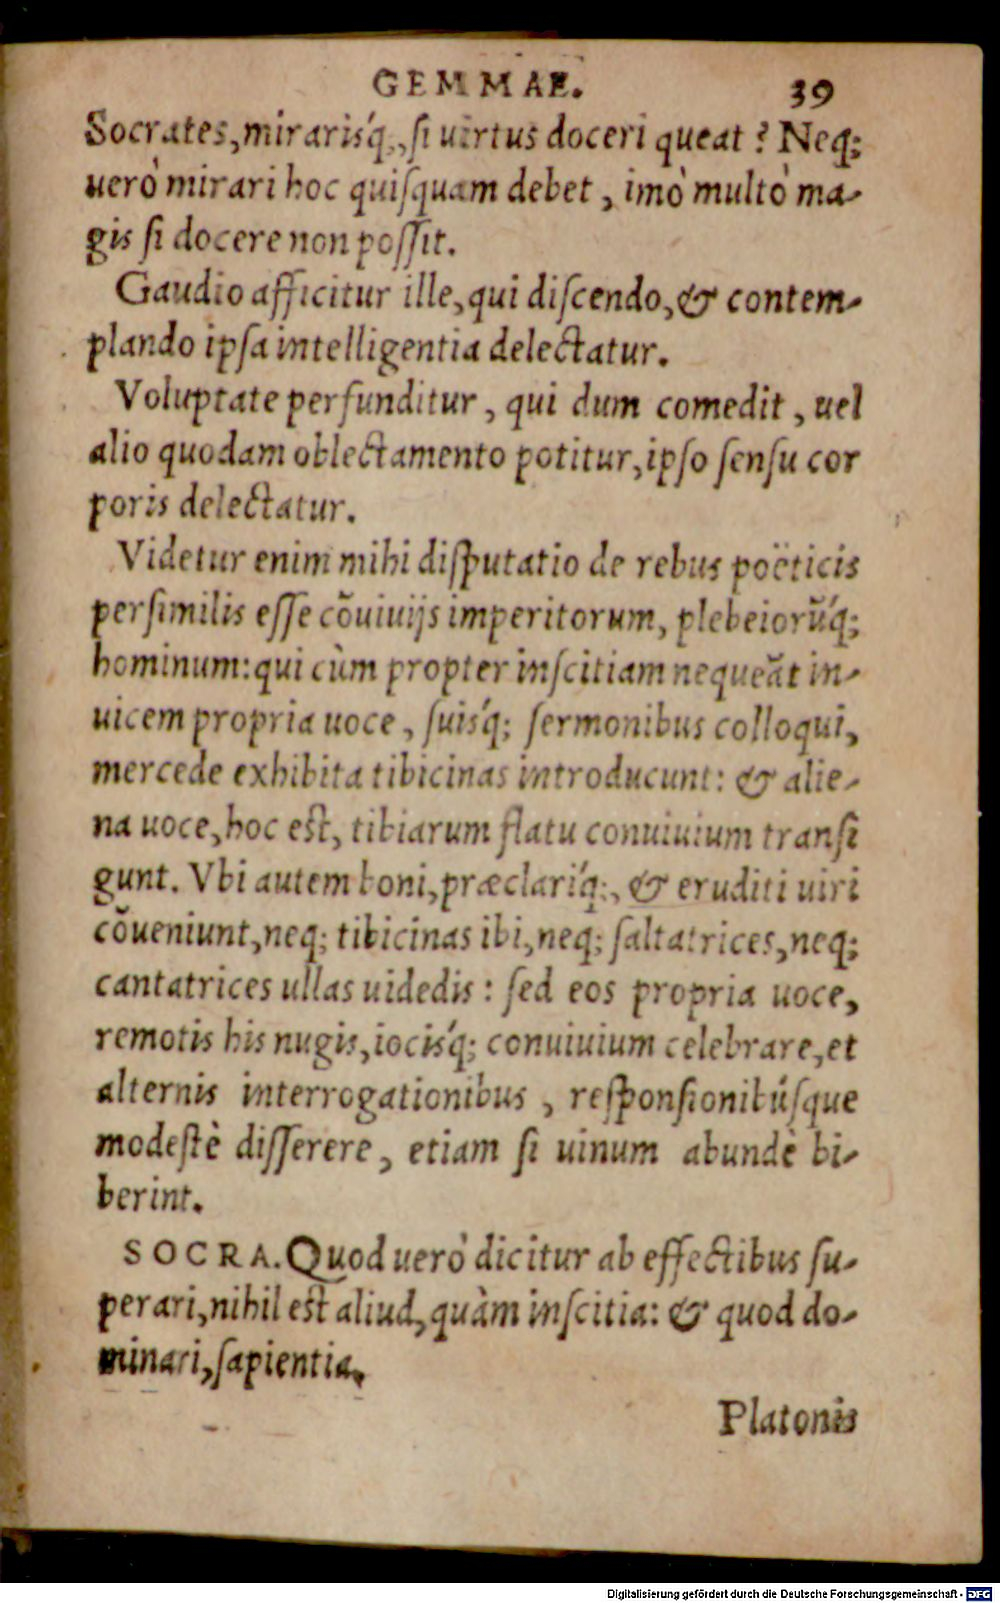 GEMMAE. 39
Socrates, mirarisq́;, ſi uirtus doceri queat? Neq;
uerò mirari hoc quiſquam debet, imò multò ma-
gis ſi docere non poſſit.
Gaudio afficitur ille, qui diſcendo, & contem-
plando ipſa intelligentia delectatur.
Voluptate perfunditur, qui dum comedit, uel
alio quodam oblectamento potitur, ipſo ſenſu cor
poris delectatur.
Videtur enim mihi diſputatio de rebus poëticis
perſimilis eſſe cõuiuijs imperitorum, plebeiorũq́;
hominum: qui cùm propter inſcitiam nequeãt in-
uicem propria uoce, ſuisq́; ſermonibus colloqui,
mercede exhibita tibicinas introducunt: & alie-
na uoce, hoc est, tibiarum flatu conuiuium tranſi
gunt. Vbi autem boni, præclariq́;, & eruditi uiri
cõueniunt, neq; tibicinas ibi, neq; ſaltatrices, neq;
cantatrices ullas uidedis: ſed eos propria uoce,
remotis his nugis, iocisq́; conuiuium celebrare, et
alternis interrogationibus, reſponſionibúſque
modeſtè diſſerere, etiam ſi uinum abundè bi-
berint.
SOCRA. Quod uerò dicitur ab effectibus ſu-
perari, nihil est aliud, quàm inſcitia: & quod do-
minari, ſapientia.
Platonis
Digitalisierung gefördert durch die Deutsche Forschungsgemeinschaft - DFG